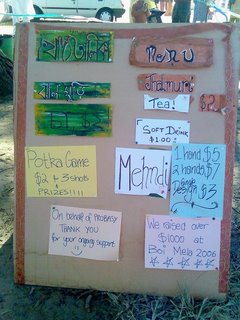 Menu
Tea!
$2
SOFT DRINK
$1.00
Potka Game
$2 = 3 shots
PRIZES!!!!
Mehndi
1 hand $5
2 hands $7
Single
Design
$3
On behalf of PROBASY
THANK YOU
for your ongoing support
We raised over
$1000 at
Boi Mela 2006